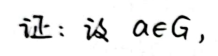 证：设 a∈G，